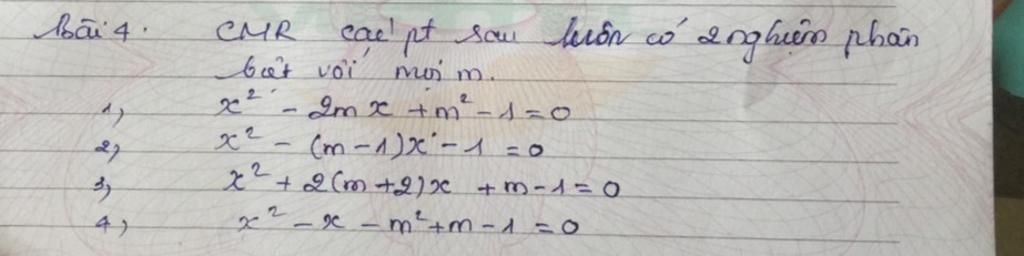 Bài 4. CMR các pt sau luôn có 2 nghiệm phân
biệt với mọi m.
1, x² - 2mx + m² - 1 = 0
2, x² - (m - 1)x - 1 = 0
3, x² + 2(m + 2)x + m - 1 = 0
4, x² - x - m² + m - 1 = 0